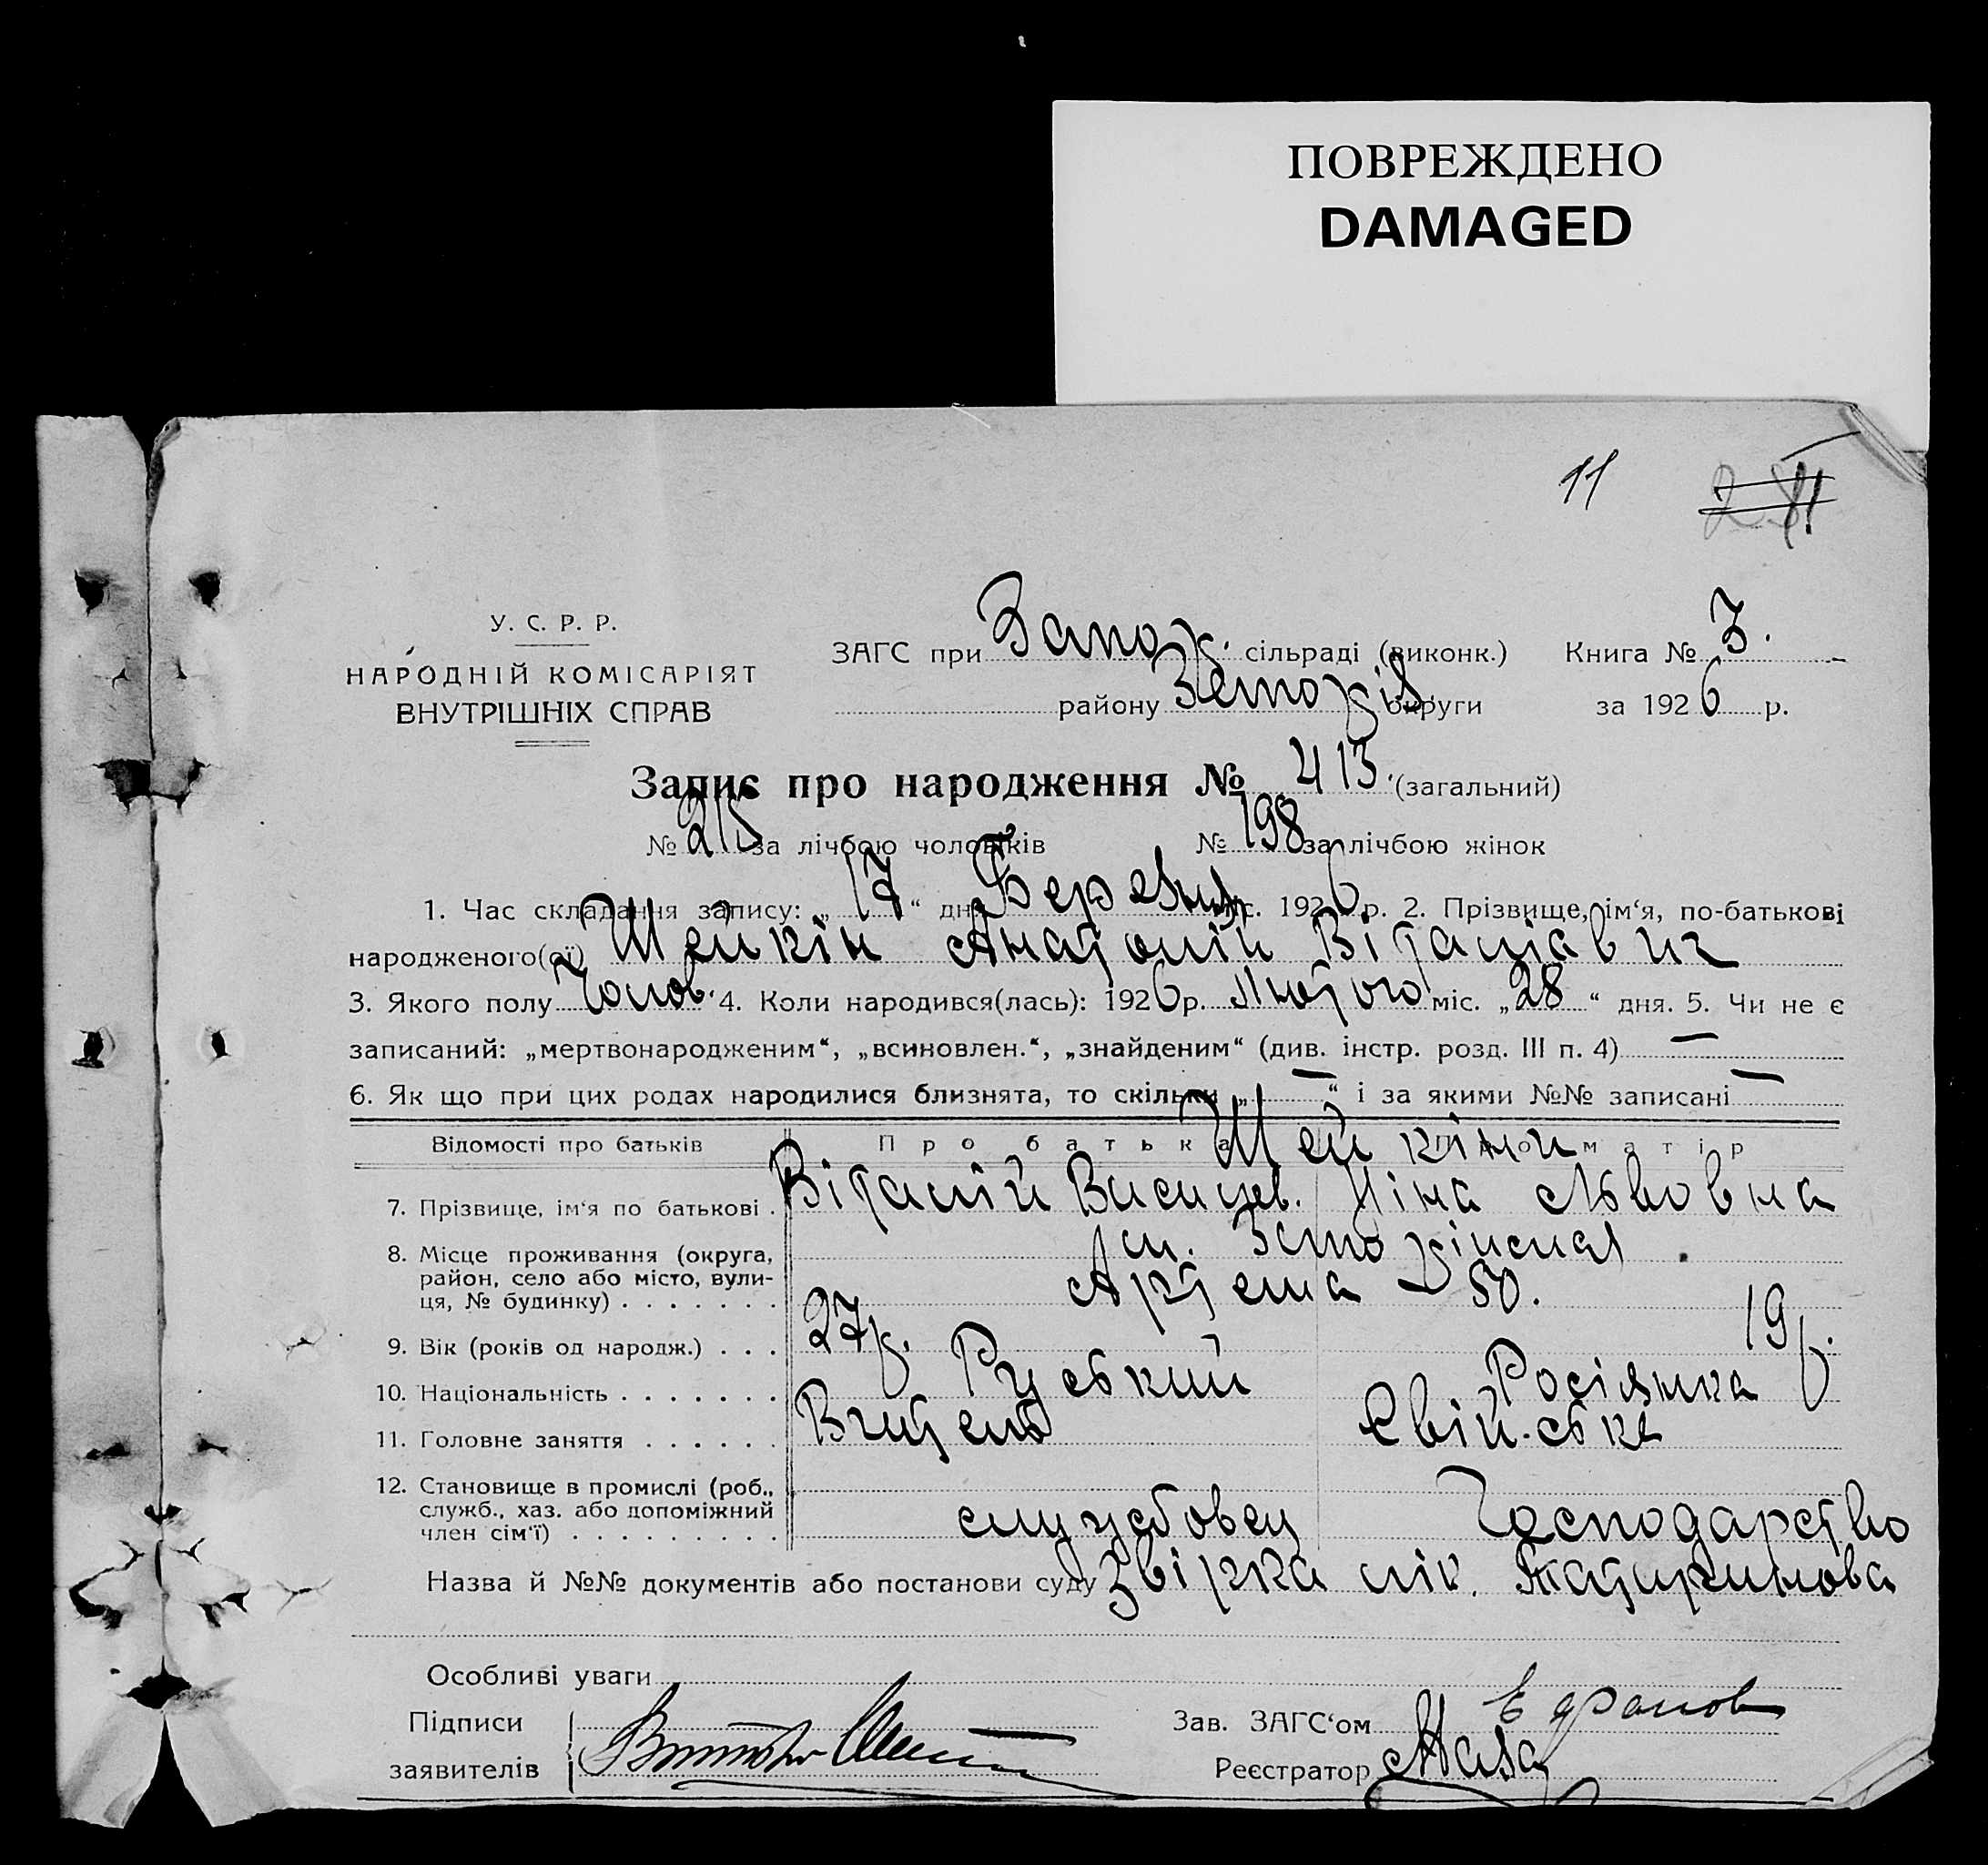 ПОВРЕЖДЕНО
DAMAGED
11
У. С. Р. Р.
НАРОДНІЙ КОМІСАРІЯТ
ВНУТРІШНІХ СПРАВ
ЗАГС при Запор. сільраді (виконк.) Книга № 3.
району округи за 1926 р.
Запис про народження № 413. (загальний)
№ 215 за лічбою чоловіків № 198 за лічбою жінок
1. Час складання запису: „17“ дня Березня міс. 1926 р. 2. Прізвище, ім‘я, по-батькові
народженого(ої) Шейкін Анатолій Віталіавич
3. Якого полу Чолов. 4. Коли народився(лась): 1926 р. Лютого міс. „28“ дня. 5. Чи не є
записаний: „мертвонародженим“, „всиновлен.“, „знайденим“ (див. інстр. розд. III п. 4) —
6. Як що при цих родах народилися близнята, то скільки „—“ і за якими №№ записані —
Відомості про батьків Про батька Про матір
Шейкіни
7. Прізвище, ім‘я по батькові . Віталій Васильев. Ніна Львовна
8. Місце проживання (округа,
район, село або місто, вули-
ця, № будинку) . . . . . . . Артема 50.
9. Вік (років од народж.) . . . 27р. 19р.
10. Національність . . . . . . . Руський Росіянка
11. Головне заняття . . . . . . Вчитель Свійське
12. Становище в промислі (роб.,
служб., хаз. або допоміжний
член сім‘ї) . . . . . . . . . службовец Господарство
Назва й №№ документів або постанови суду Звірка лік.
Особливі уваги
Підписи
заявителів
Зав. ЗАГС‘ом
Реєстратор